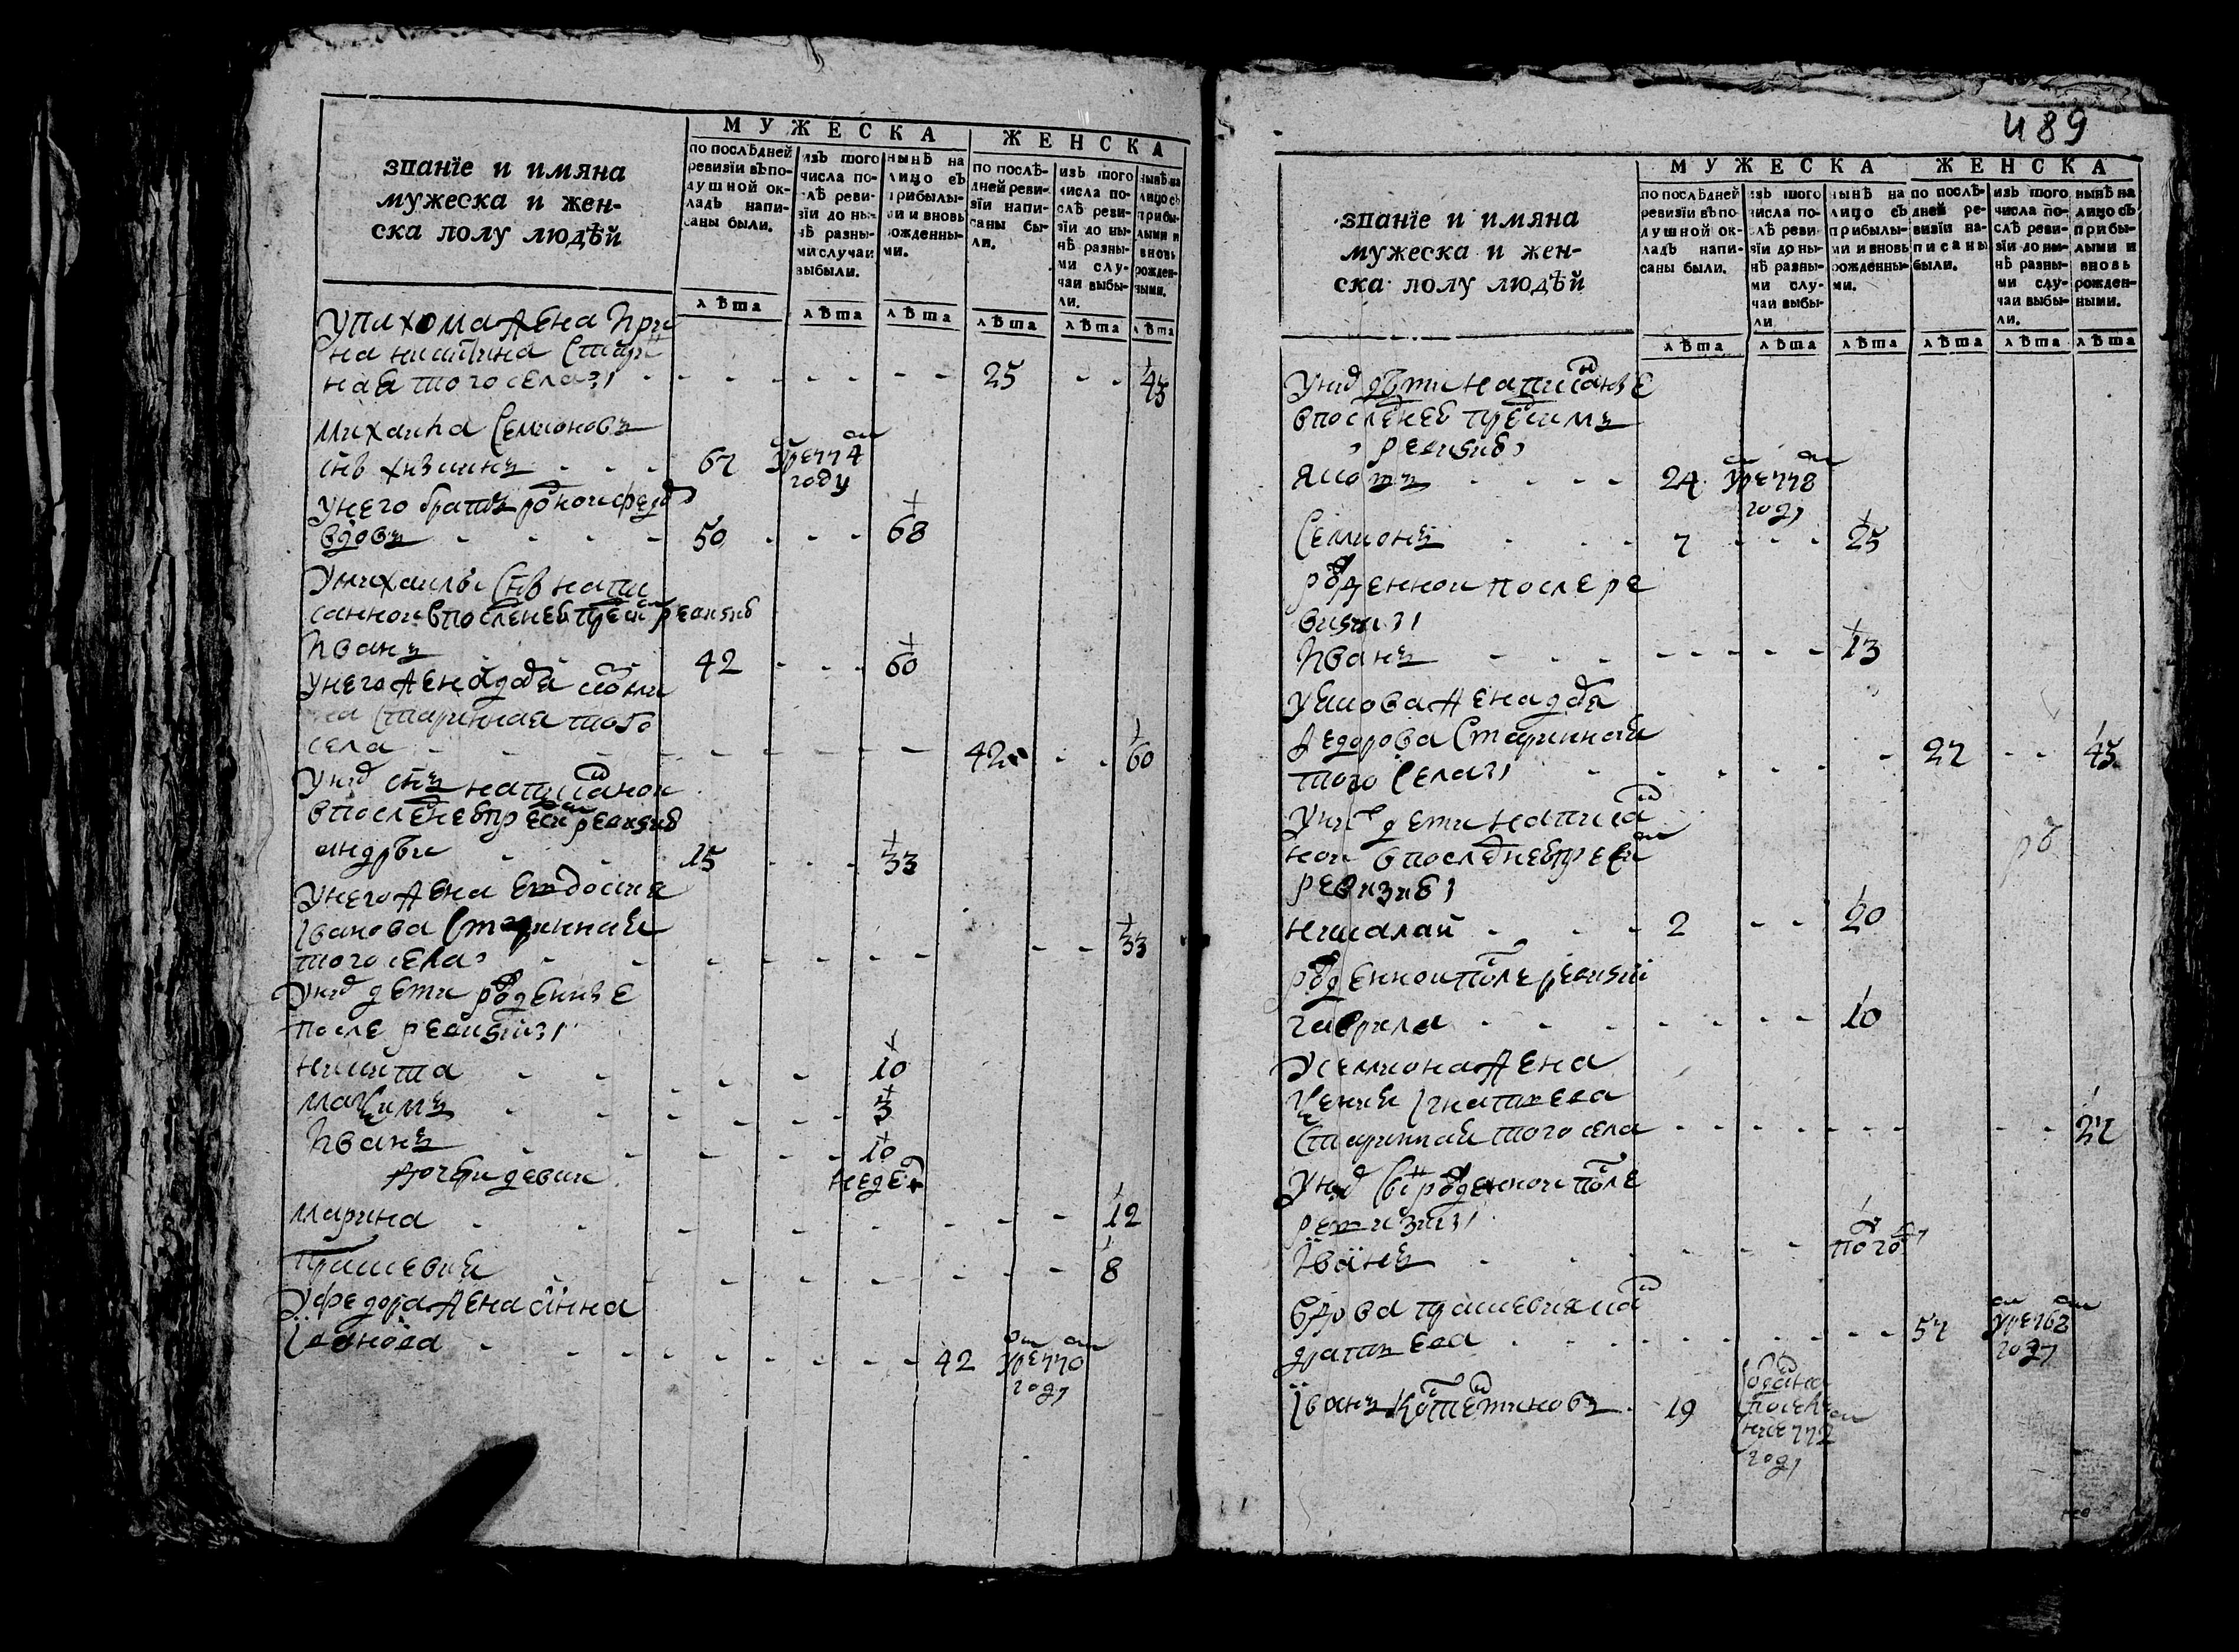 МУЖЕСКА
ЖЕНСКА
званїе и имяна
мужеска и жен-
ска полу людѣй
по послѣдней
ревизїи въ по-
душной ок-
ладъ напи-
саны были.
изъ того
числа по-
слѣ реви-
зїи до ны-
нѣ разны-
ми случаи
выбыли.
нынѣ на
лицо съ
прибылы-
ми и вновь
рожденны-
ми.
по послѣ-
дней реви-
зїи напи-
саны бы-
ли.
изъ того
числа по-
слѣ реви-
зїи до ны-
нѣ разны-
ми слу-
чаи выбы-
ли.
нынѣ на
лицо съ
прибы-
лыми и
вновь
рожден-
ными.
лѣта лѣта лѣта лѣта лѣта лѣта
у пахома жена Ири
на никитина стари
ная того села 25 45
михаила Семионовъ
снъ 67 умре 774
году
у него братъ родной федор
вдовъ 50 68
у михаилы снъ напи
санной в последней пред сим ревизие
Иванъ 42 60
у него жена
старинная того
села 42 60
у них снъ написаной
в последней пред сим ревизие
андрей 15 33
у него жена
Иванова старинная
того села 33
у них дети рожденые
после ревизии
никита 10
максимъ 3
Иванъ 10
недел
дочери девки
марина 12
прасковия 8
у федора жена анна
Иванова 42 умре 770
году
489
МУЖЕСКА
ЖЕНСКА
званїе и имяна
мужеска и жен-
ска полу людѣй
по послѣдней
ревизїи въ по-
душной ок-
ладъ напи-
саны были.
изъ того
числа по-
слѣ реви-
зїи до ны-
нѣ разны-
ми слу-
чаи выбы-
ли
нынѣ на
лицо съ
прибылы-
ми и вновь
рожденны-
ми.
по послѣ-
дней ре-
визїи на-
писаны
были.
изъ того
числа по-
слѣ реви-
зїи до ны-
нѣ разны-
ми слу-
чаи выбы-
ли.
нынѣ на
лицо съ
прибы-
лыми и
вновь
рожден-
ными.
лѣта лѣта лѣта лѣта лѣта лѣта
у них дѣти написаные
в последней пред симъ
ревизие
яковъ 24 умре 778
году
Семионъ 7 25
рожденной после ре
визии
Иванъ 13
у якова жена
федорова старинная
того села 27 45
у них дети написа
ной в последней пред сим
ревизие
николай 2 20
рожденной после ревизии
гаврила 10
у семиона жена
ксения Игнатьева
старинная того села 27
у них снъ рожденной после
ревизии
Иванъ полгоду
вдова прасковия
57 умре 762
году
Иванъ 19 одан на
поселе
ние 772
году